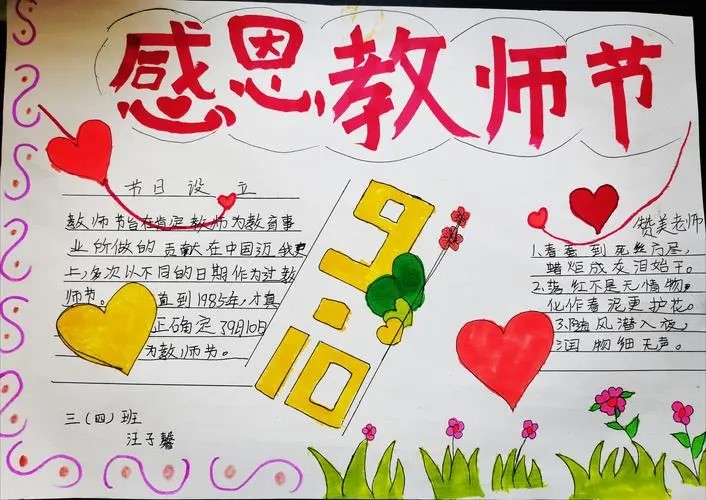 感恩教师节
节日设立
教师节旨在肯定教师为教育事
业所做的贡献在中国近
上,多次以不同的日期作为过教
师节。直到1985年,才真
正确定了9月10日
为教师节。
9.10
赞美老师
1.春蚕到死丝方尽,
蜡炬成灰泪始干。
2.落红不是无情物,
化作春泥更护花。
3.随风潜入夜,
润物细无声。
三(四)班
汪子馨